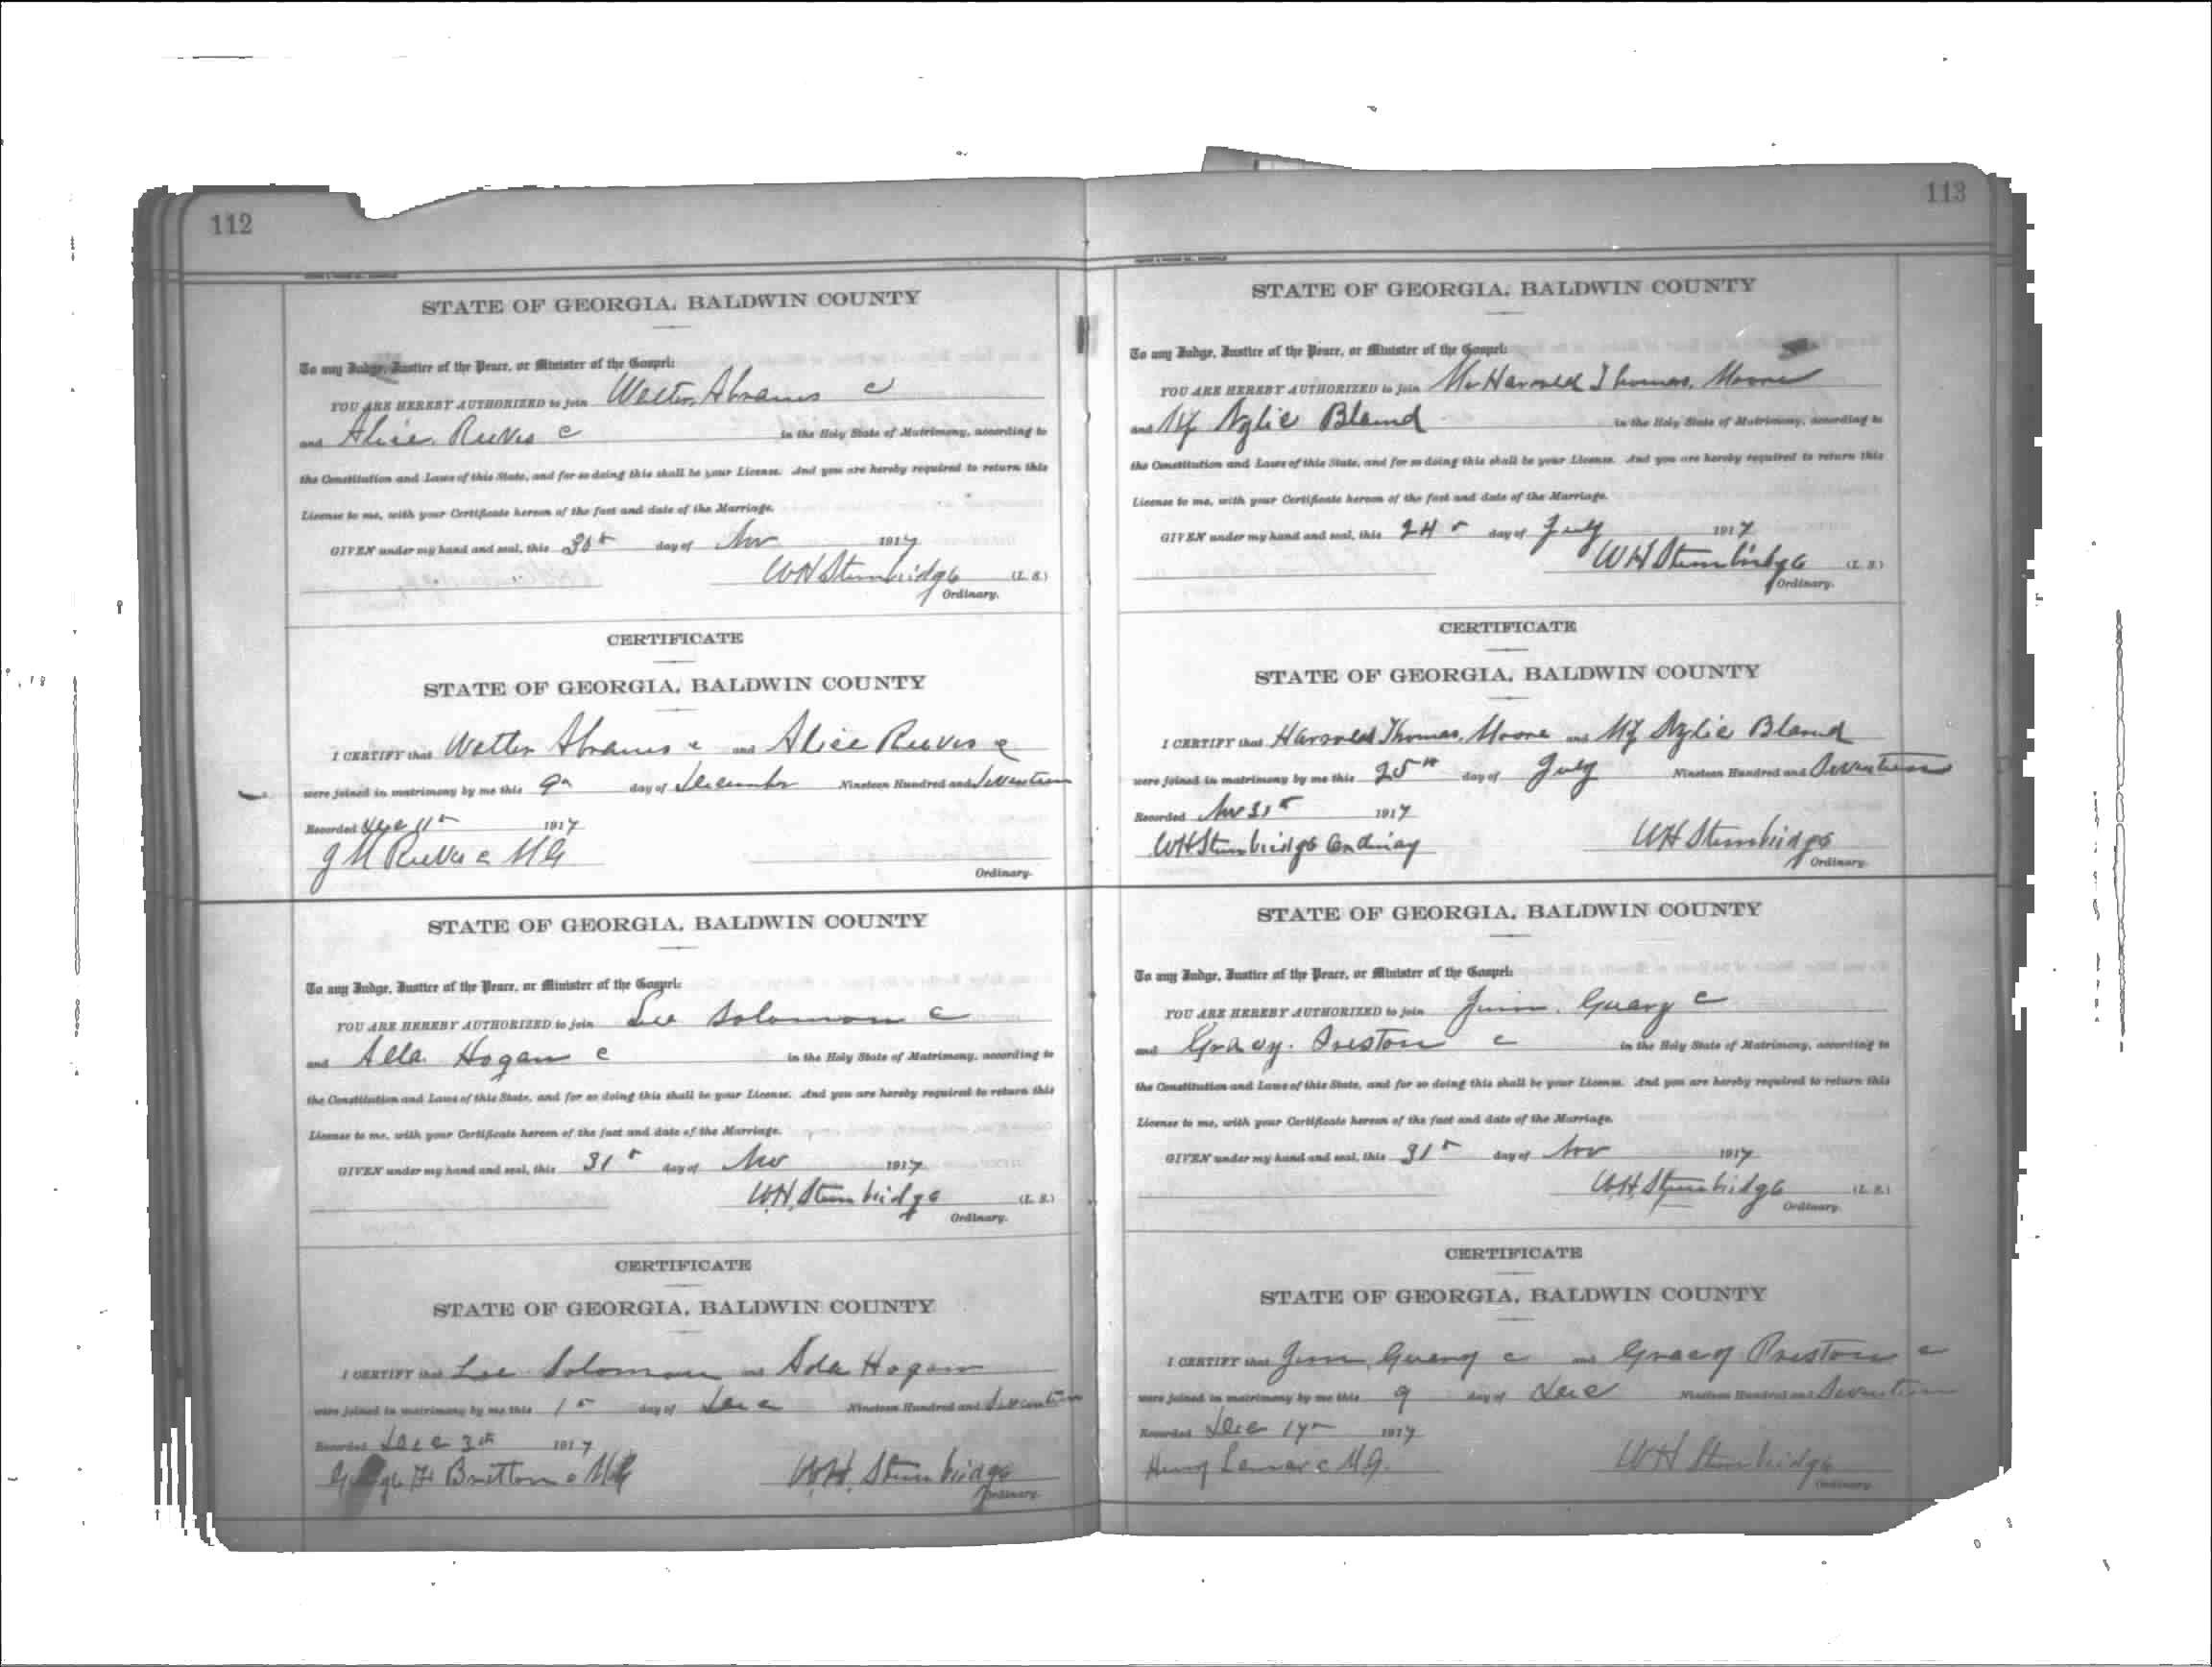 112
STATE OF GEORGIA, BALDWIN COUNTY
To any Judge, Justice of the Peace, or Minister of the Gospel:
YOU ARE HEREBY AUTHORIZED to join Walter Abrams c
and Alice Reeves c in the Holy State of Matrimony, according to
the Constitution and Laws of this State, and for so doing this shall be your License. And you are hereby required to return this
License to me, with your Certificate hereon of the fact and date of the Marriage.
GIVEN under my hand and seal, this 30th day of Nov 1917
WH Stembridge (L. S.)
Ordinary.
CERTIFICATE
STATE OF GEORGIA, BALDWIN COUNTY
I CERTIFY that Walter Abrams c and Alice Reeves c
were joined in matrimony by me this 9th day of December Nineteen Hundred and Seventeen
Recorded Dec 11th 1917
J M Reeves c MG
Ordinary.
STATE OF GEORGIA, BALDWIN COUNTY
To any Judge, Justice of the Peace, or Minister of the Gospel:
YOU ARE HEREBY AUTHORIZED to join Lee Solomon c
and Hogan c in the Holy State of Matrimony, according to
the Constitution and Laws of this State, and for so doing this shall be your License. And you are hereby required to return this
License to me, with your Certificate hereon of the fact and date of the Marriage.
GIVEN under my hand and seal, this 31st day of Nov 1917
W.H. Stembridge (L. S.)
Ordinary.
CERTIFICATE
STATE OF GEORGIA, BALDWIN COUNTY
I CERTIFY that Lee Solomon and Ada Hogan
were joined in matrimony by me this 1st day of Dec Nineteen Hundred and Seventeen
Recorded Dec 3th 1917
Britton c MG W.H. Stembridge
Ordinary.
113
STATE OF GEORGIA, BALDWIN COUNTY
To any Judge, Justice of the Peace, or Minister of the Gospel:
YOU ARE HEREBY AUTHORIZED to join Mr Harrold Thomas Moore
and Bland in the Holy State of Matrimony, according to
the Constitution and Laws of this State, and for so doing this shall be your License. And you are hereby required to return this
License to me, with your Certificate hereon of the fact and date of the Marriage.
GIVEN under my hand and seal, this 24th day of July 1917
WH Stembridge (L. S.)
Ordinary.
CERTIFICATE
STATE OF GEORGIA, BALDWIN COUNTY
I CERTIFY that Harrold Thomas Moore and Bland
were joined in matrimony by me this 25th day of July Nineteen Hundred and Seventeen
Recorded Nov 31st 1917
WH Stembridge Ordinary WH Stembridge
Ordinary
STATE OF GEORGIA, BALDWIN COUNTY
To any Judge, Justice of the Peace, or Minister of the Gospel:
YOU ARE HEREBY AUTHORIZED to join Jim c
and Gracy Preston c in the Holy State of Matrimony, according to
the Constitution and Laws of this State, and for so doing this shall be your License. And you are hereby required to return this
License to me, with your Certificate hereon of the fact and date of the Marriage.
GIVEN under my hand and seal, this 31st day of Nov 1917
W.H. Stembridge (L. S.)
Ordinary.
CERTIFICATE
STATE OF GEORGIA, BALDWIN COUNTY
I CERTIFY that Jim c and Gracy Preston c
were joined in matrimony by me this 9 day of Dec Nineteen Hundred and Seventeen
Recorded Dec 1917
Lamar c MG. WH Stembridge
Ordinary.